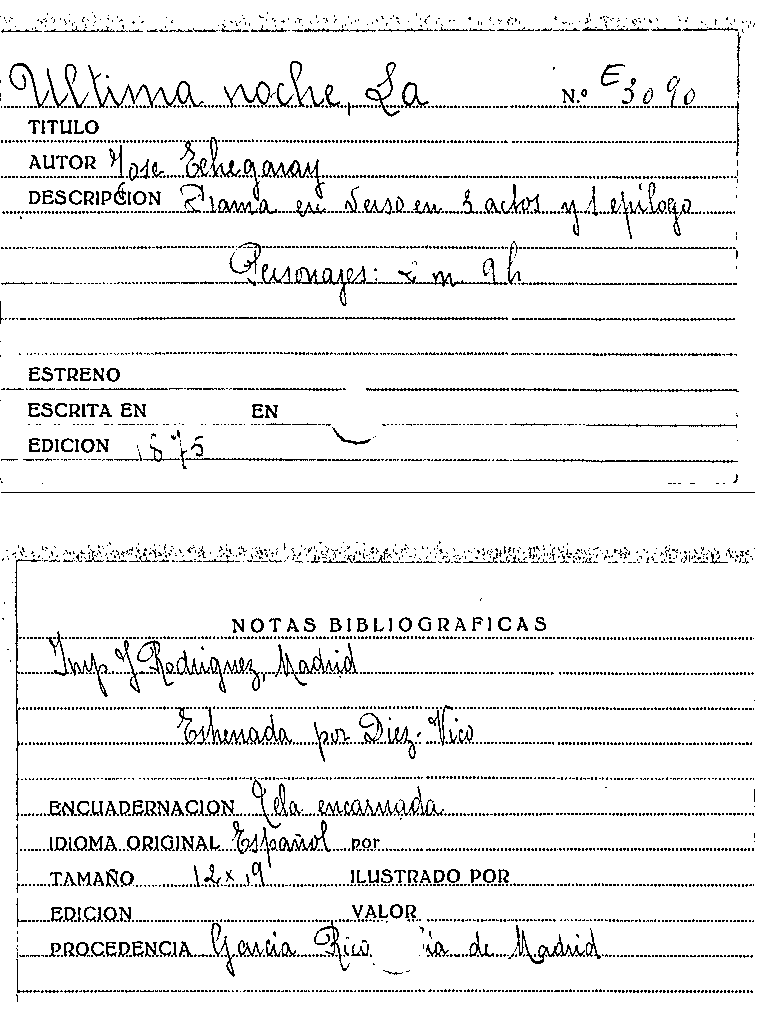 Ultima noche, La N.º E3090
TITULO
AUTOR Jose Echegaray
DESCRIPCION Drama en verso en 3 actos y 1 epílogo
Personajes: 2 m 9 h
ESTRENO
ESCRITA EN EN
EDICION 1875
NOTAS BIBLIOGRAFICAS
Imp J Rodriguez, Madrid
Estrenada por Diez-Vico
ENCUADERNACION Tela encarnada
IDIOMA ORIGINAL Español por
TAMAÑO 12 x 19 ILUSTRADO POR
EDICION VALOR
PROCEDENCIA Garcia Rico de Madrid